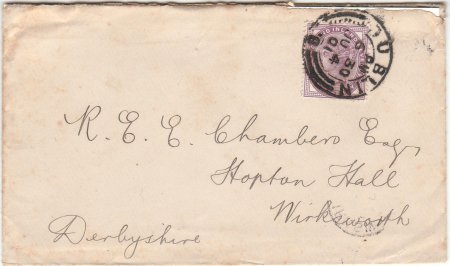 DUBLIN
R. E. E. Chambers Esq,
Hopton Hall
Wirksworth
Derbyshire